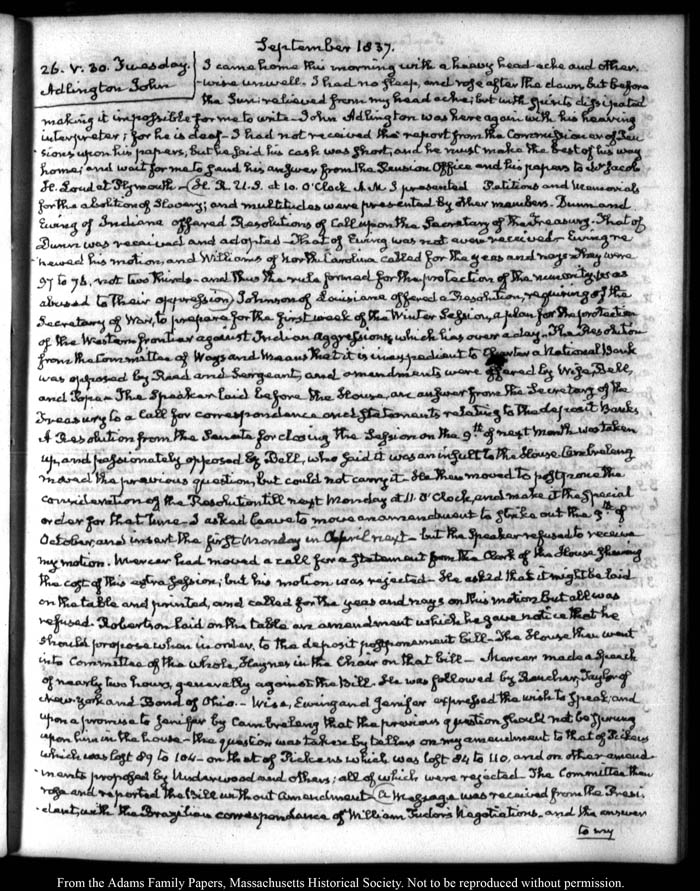 September 1837.
26. V. 30. Tuesday.
Adlington John
I came home this morning with a heavy head-ache and other-
-wise unwell. I had no sleep, and rose after the dawn but before
the Sun: relieved from my head ache; but with spirits dissipated
making it impossible for me to write. John Adlington was here again with his hearing
interpreter; for he is deaf— I had not received the report from the Commissioner of Pen
sions upon his papers; but he said his cash was short, and he must make the best of his way
home; and wait for me to send his answer from the Pension Office and his papers to Mr Jacob
H. Loud at Plymouth— H. R. U.S. at 10. O'Clock A.M. I presented Petitions and Memorials
for the abolition of Slavery; and multitudes were presented by other members. Dunn and
Ewing of Indiana offered Resolutions of Call upon the Secretary of the Treasury. That of
Dunn was received and adopted— That of Ewing was not even received— Ewing re
newed his motion, and Williams of North Carolina called for the yeas and nays— they were
97 to 76. not two thirds— and thus the rule formed for the protection of the minority was
abused to their oppression. Johnson of Louisiana offered a Resolution, requiring of the
Secretary of War, to prepare for the first week of the Winter Session, a plan for the protection
of the Western frontier against Indian Aggressions, which lies over a day— The Resolution
from the Committee of Ways and Means that it is inexpedient to Charter a National Bank
was opposed by Reed and Sergeant, and amendments were offered by Wise, Bell,
and Pope— The Speaker laid before the House, an answer from the Secretary of the
Treasury to a call for correspondence and Statements relating to the deposit Banks
A Resolution from the Senate for closing the Session on the 9th of next Month was taken
up, and passionately opposed by Bell, who said it was an insult to the House. Cambreleng
moved the previous question, but could not carry it. He then moved to postpone the
consideration of the Resolution till next Monday at 11. O'Clock, and make it the Special
order for that time— I asked leave to move an amendment to strike out the 9th of
October, and insert the first Monday in April next— but the Speaker refused to receive
my motion. Mercer had moved a call for a Statement from the Clerk of the House shewing
the cost of this extra Session; but his motion was rejected— He asked that it might be laid
on the table and printed, and called for the yeas and nays on this motion. But all was
refused. Robertson laid on the table an amendment which he gave notice that he
should propose when in order, to the deposit postponement bill— The House then went
into Committee of the whole, Haynes in the Chair on that bill— Mercer made a Speech
of nearly two hours, generally against the Bill. He was followed by Rencher, Taylor of
New-York and Bond of Ohio.— Wise, Ewing and Jenifer expressed the wish to Speak, and
upon a promise to Jenifer by Cambreleng that the previous question should not be sprung
upon him in the house— the question was taken by tellers on my amendment to that of Pickens
which was lost 89 to 104— on that of Pickens which was lost 84 to 110, and on other amend
ments proposed by Underwood and others; all of which were rejected— The Committee then
rose and reported the Bill without amendment. A Message was received from the Presi-
-dent, with the Brazilian correspondence of William Tudor's Negotiations— and the answer
to my
From the Adams Family Papers, Massachusetts Historical Society. Not to be reproduced without permission.